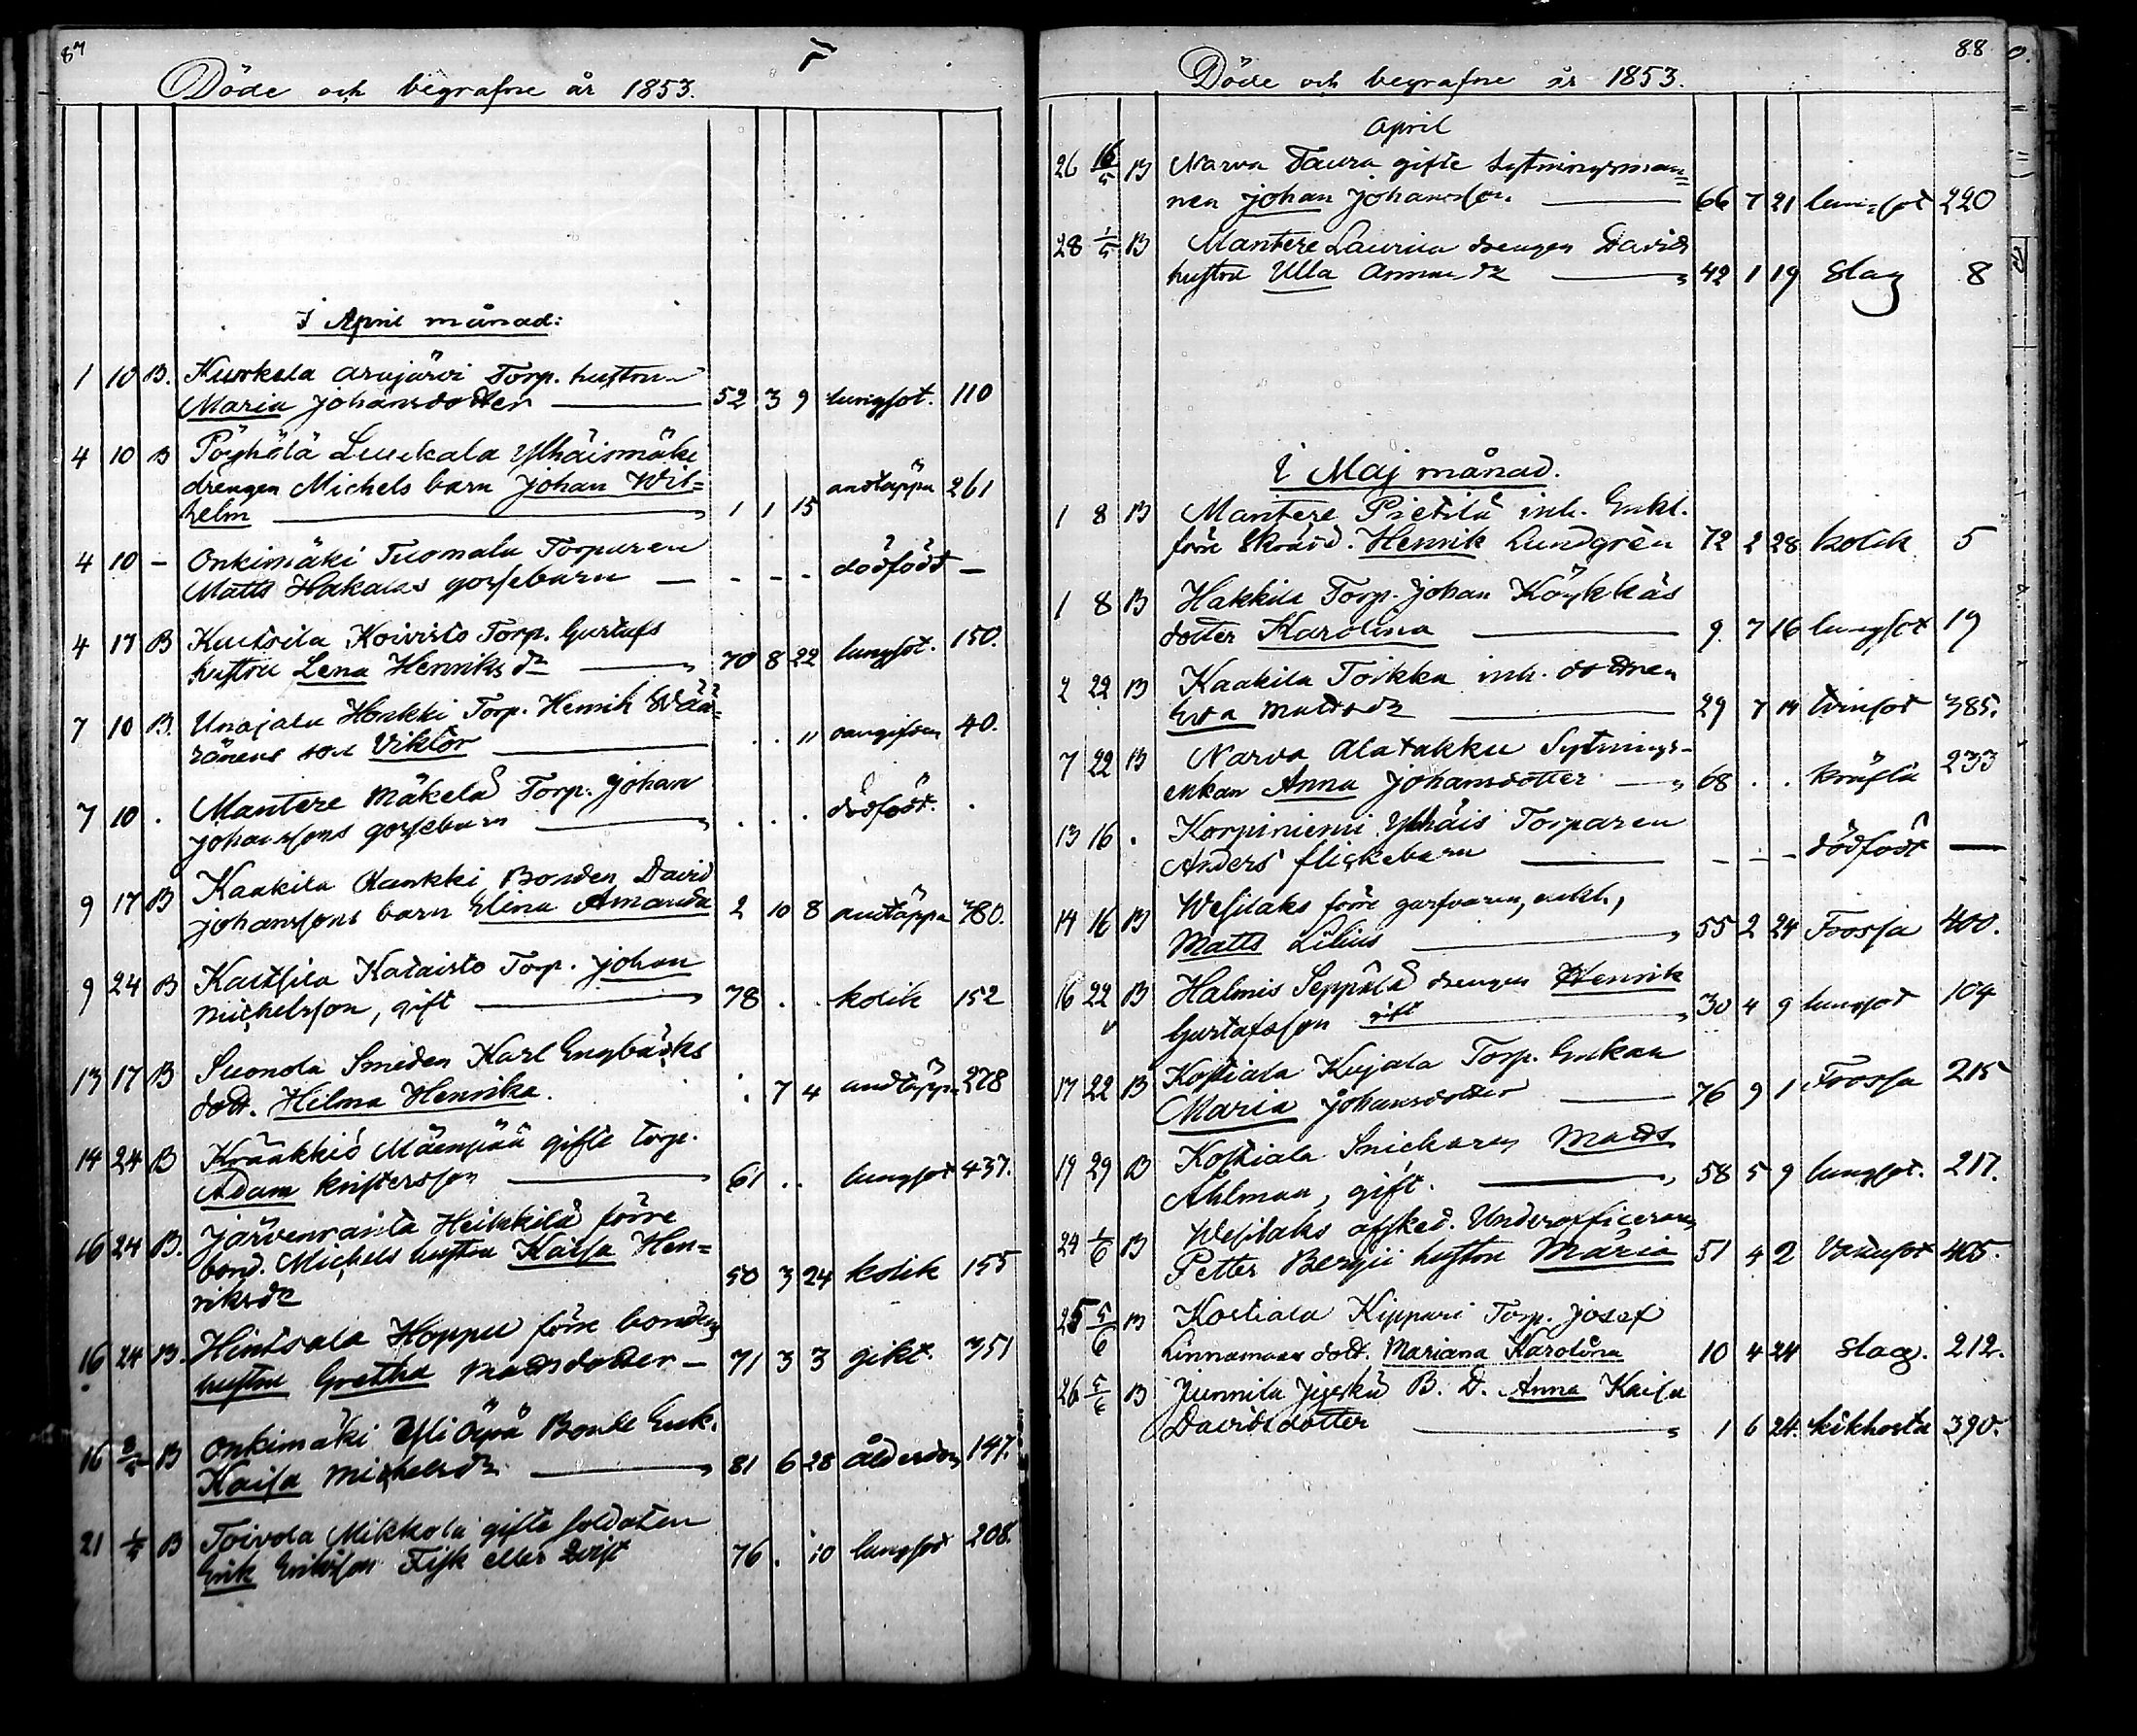 87
Döde och begrafne år 1853.
I April månad:
1 10 B. Kurkela Arajärvi Torp. hustru
Maria Johansdotter 52 3 9 lungsot. 110
4 10 B Pöyhölä Luukala Ylhäismäki
drengen Michels barn Johan Wil=
helm 1 1 15 andtäppa 261
4 10 - Onkimäki Tuomala Torparen
Matts Hakalas gossebarn - - - - dödfödt -
4 17 B Kutsila Koivisto Torp. Gustafs
hustru Lena Henriksdr 70 8 22 lungsot. 150.
7 10 B. Unajala Honkki Torp. Henrik
ränens son Viktor . . " oangifven 40.
7 10 . Mantere Mäkelä Torp. Johan
Johanssons gossebarn . . . dödfödt. .
9 17 B Kaakila Bonden David
Johanssons barn Elina Amanda 2 10 8 andtäppa 380.
9 24 B Kautsila Kataisto Torp. Johan
Michelsson, gift 78 . . kolik 152
13 17 B Suonola Smeden Karl Engbäcks
dott. Hilma Henrika. . 7 4 andtäppa 278
14 24 B Krääkkiö Mäenpää gifte torp.
Adam Kristersson 61 . . lungsot 437.
16 24 B. Järvenranta Heikkilä förre
bond. Michels hustru Kaisa Hen=
riksdr 50 3 24 kolik 155
16 24 B. Hintsala Hoppu förre bondens
hustru Gretha Madsdotter - 71 3 3 gikt. 351
16 B Onkimäki Yli Äijä Bonde Enk.
Kaisa Michelsdr 81 6 28 ålderdom 147.
21 1/5 B Toivola Mikkola gifte soldaten
Erik Eriksson Fisk eller Qvist 76 . 10 lungsot 208.
88
Döde och begrafne år 1853.
April
26 B Narva Taura gifte Sytningsman=
nen Johan Johansson 66 7 21 lungsot 220
28 1/5 B Mantere Lauria drengen Davids
hustru Ulla Annasdr 42 1 19 Slag 8
I Maj månad.
1 8 B Mantere Pietilä inh. Enkl.
förre Skrädd. Henrik Lundgrén 72 2 28 kolik 5
1 8 B Hakkila Torp. Johan Köykkäs
dotter Karolina 9. 7 16 lungsot 19
2 22 B Kaakila Toikka inh. dottren
Eva Matsdr 29 7 14 tvinsot 385.
7 22 B Narva Alatakku Sytnings-
enkan Anna Johansdotter 68 . . kräfta 233
13 16 . Korpiniemi Ylhäis Torparen
Anders flickebarn - - - dödfödt -
14 16 B Wesilaks förre garfvaren, enkl.,
Matts Lilius 55 2 24 Frossa 400.
16 22 B Halmis Seppälä drengen Henrik
Gustafsson gift 30 4 9 lungsot 104
17 22 B Kostiala Kujala Torp. Enkan
Maria Johansdotter 76 9 1 Frossa 215
19 29 B Kostiala Snickaren Mads
Åhlman, gift. 58 5 9 lungsot. 217.
24 5/6 B Wesilaks afsked. Underofficeraren
Petter Bergii hustru Maria 51 4 2 Vattusot 405.
25 5/6 B Kostiala Kippari Torp. Josef
Linnamaas dott. Mariana Karolina 10 4 24 Slag. 212.
26 5/6 B Junnila B. D. Anna Kaisa
Davidsdotter 1 6 24. kikhosta 390.